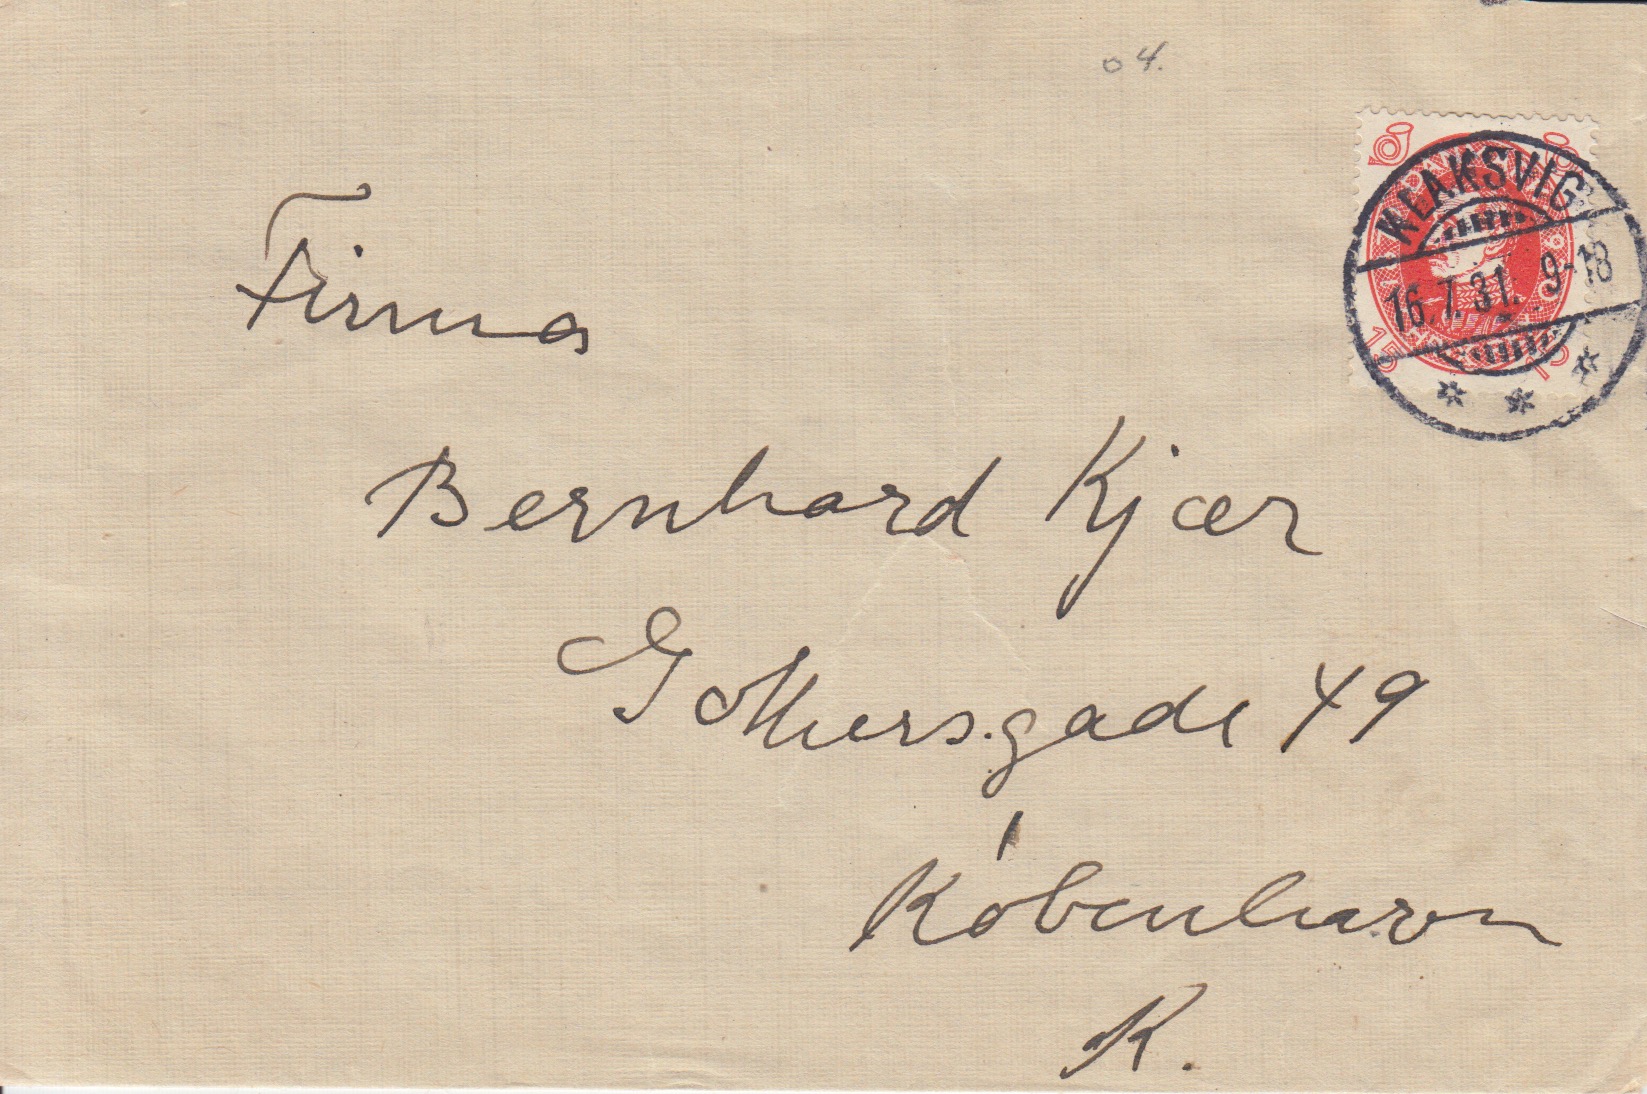 04.
KLAKSVIG
16.7.31. 9-18
15 15
Firma
Bernhard Kjær
Gothersgade 49
København
K.